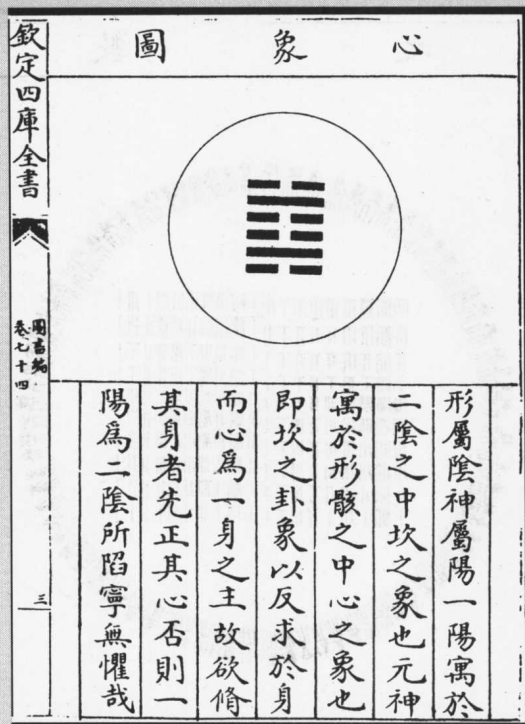 欽定四庫全書
圖書編
卷七十四
三
心象圖
形屬陰神屬陽一陽寓於
二陰之中坎之象也元神
寓於形骸之中心之象也
即坎之卦象以反求於身
而心為一身之主故欲脩
其身者先正其心否則一
陽為二陰所陷寧無懼哉